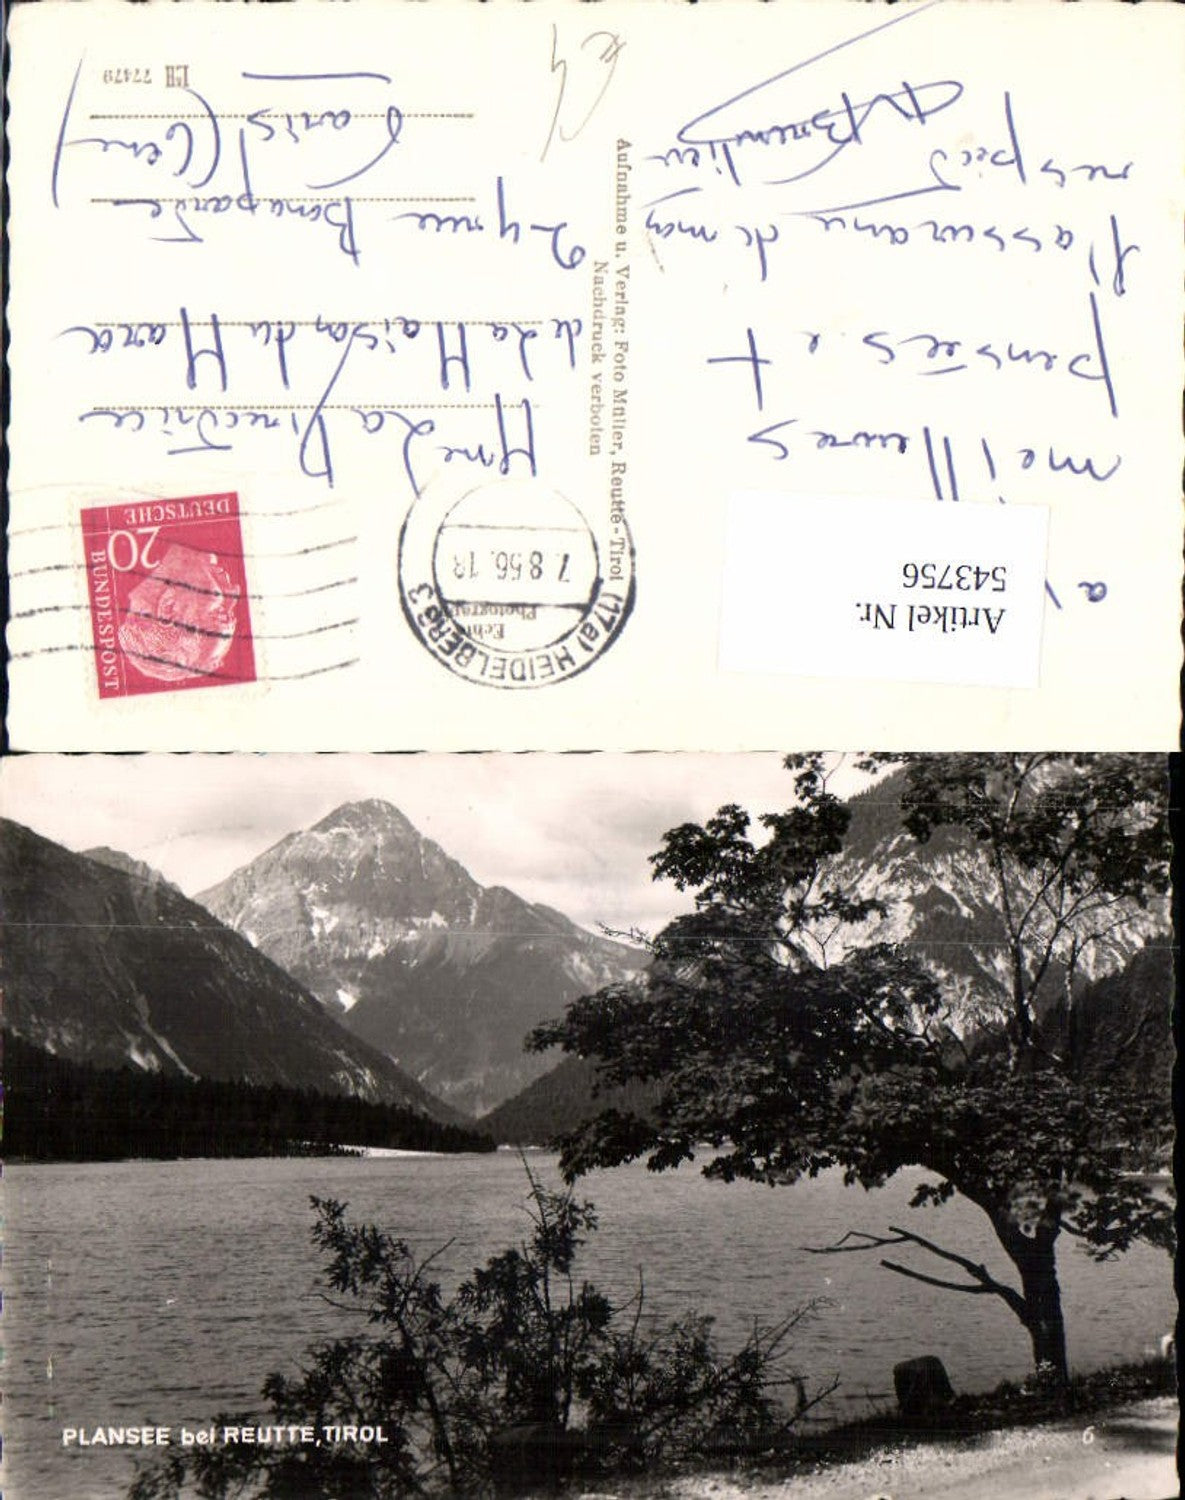 meilleures
pensées et
l'assurance de mon
respect
Artikel Nr.
543756
Aufnahme u. Verlag: Foto Müller, Reutte-Tirol
Nachdruck verboten
Echte
(17a) HEIDELBERG 3
7.8.56.18
DEUTSCHE
BUNDESPOST
20
Mme La Directrice
de La Maison du
2-4 rue Bonaparte
Paris (6eme)
77479
PLANSEE bei REUTTE, TIROL
6